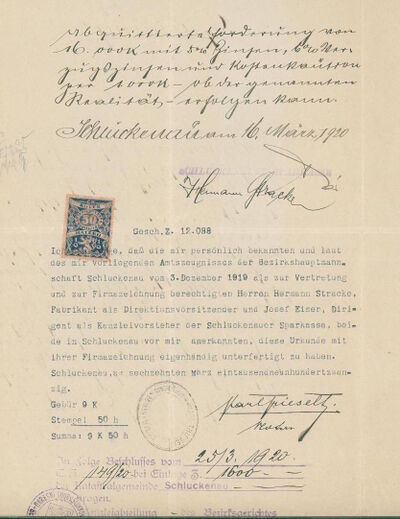 abquittierte Forderung von
16.000 K mit 5% Zinsen, 6% Ver-
zugszinsen und Kostenkaution
per 1000 K – ob der genannten
Realität, – erfolgen kann.
Schluckenau am 16. März 1920
Hermann Stracke
50
Gesch.Z. 12.088
daß die mir persönlich bekannten und laut
des mir vorliegenden Amtszeugnisses der Bezirkshauptmann-
schaft Schluckenau vom 3. Dezember 1919 als zur Vertretung
und zur Firmazeichnung berechtigten Herren Hermann Stracke,
Fabrikant als Direktionsvorsitzender und Josef Eiser, Diri-
gent als Kanzleivorsteher der Schluckenauer Sparkasse, bei-
de in Schluckenau vor mir anerkannten, diese Urkunde mit
ihrer Firmazeichnung eigenhändig unterfertigt zu haben.
Schluckenau, am sechzehnten März eintausendneunhundertzwan-
zig.
Gebür 9 K
Stempel 50 h
Summa: 9 K 50 h
Karl Pieselt
Notar
In Folge Beschlusses vom 25/3. 1920
149/20 bei Einlage Z. 1600
der Katastralgemeinde Schluckenau
des Bezirksgerichtes